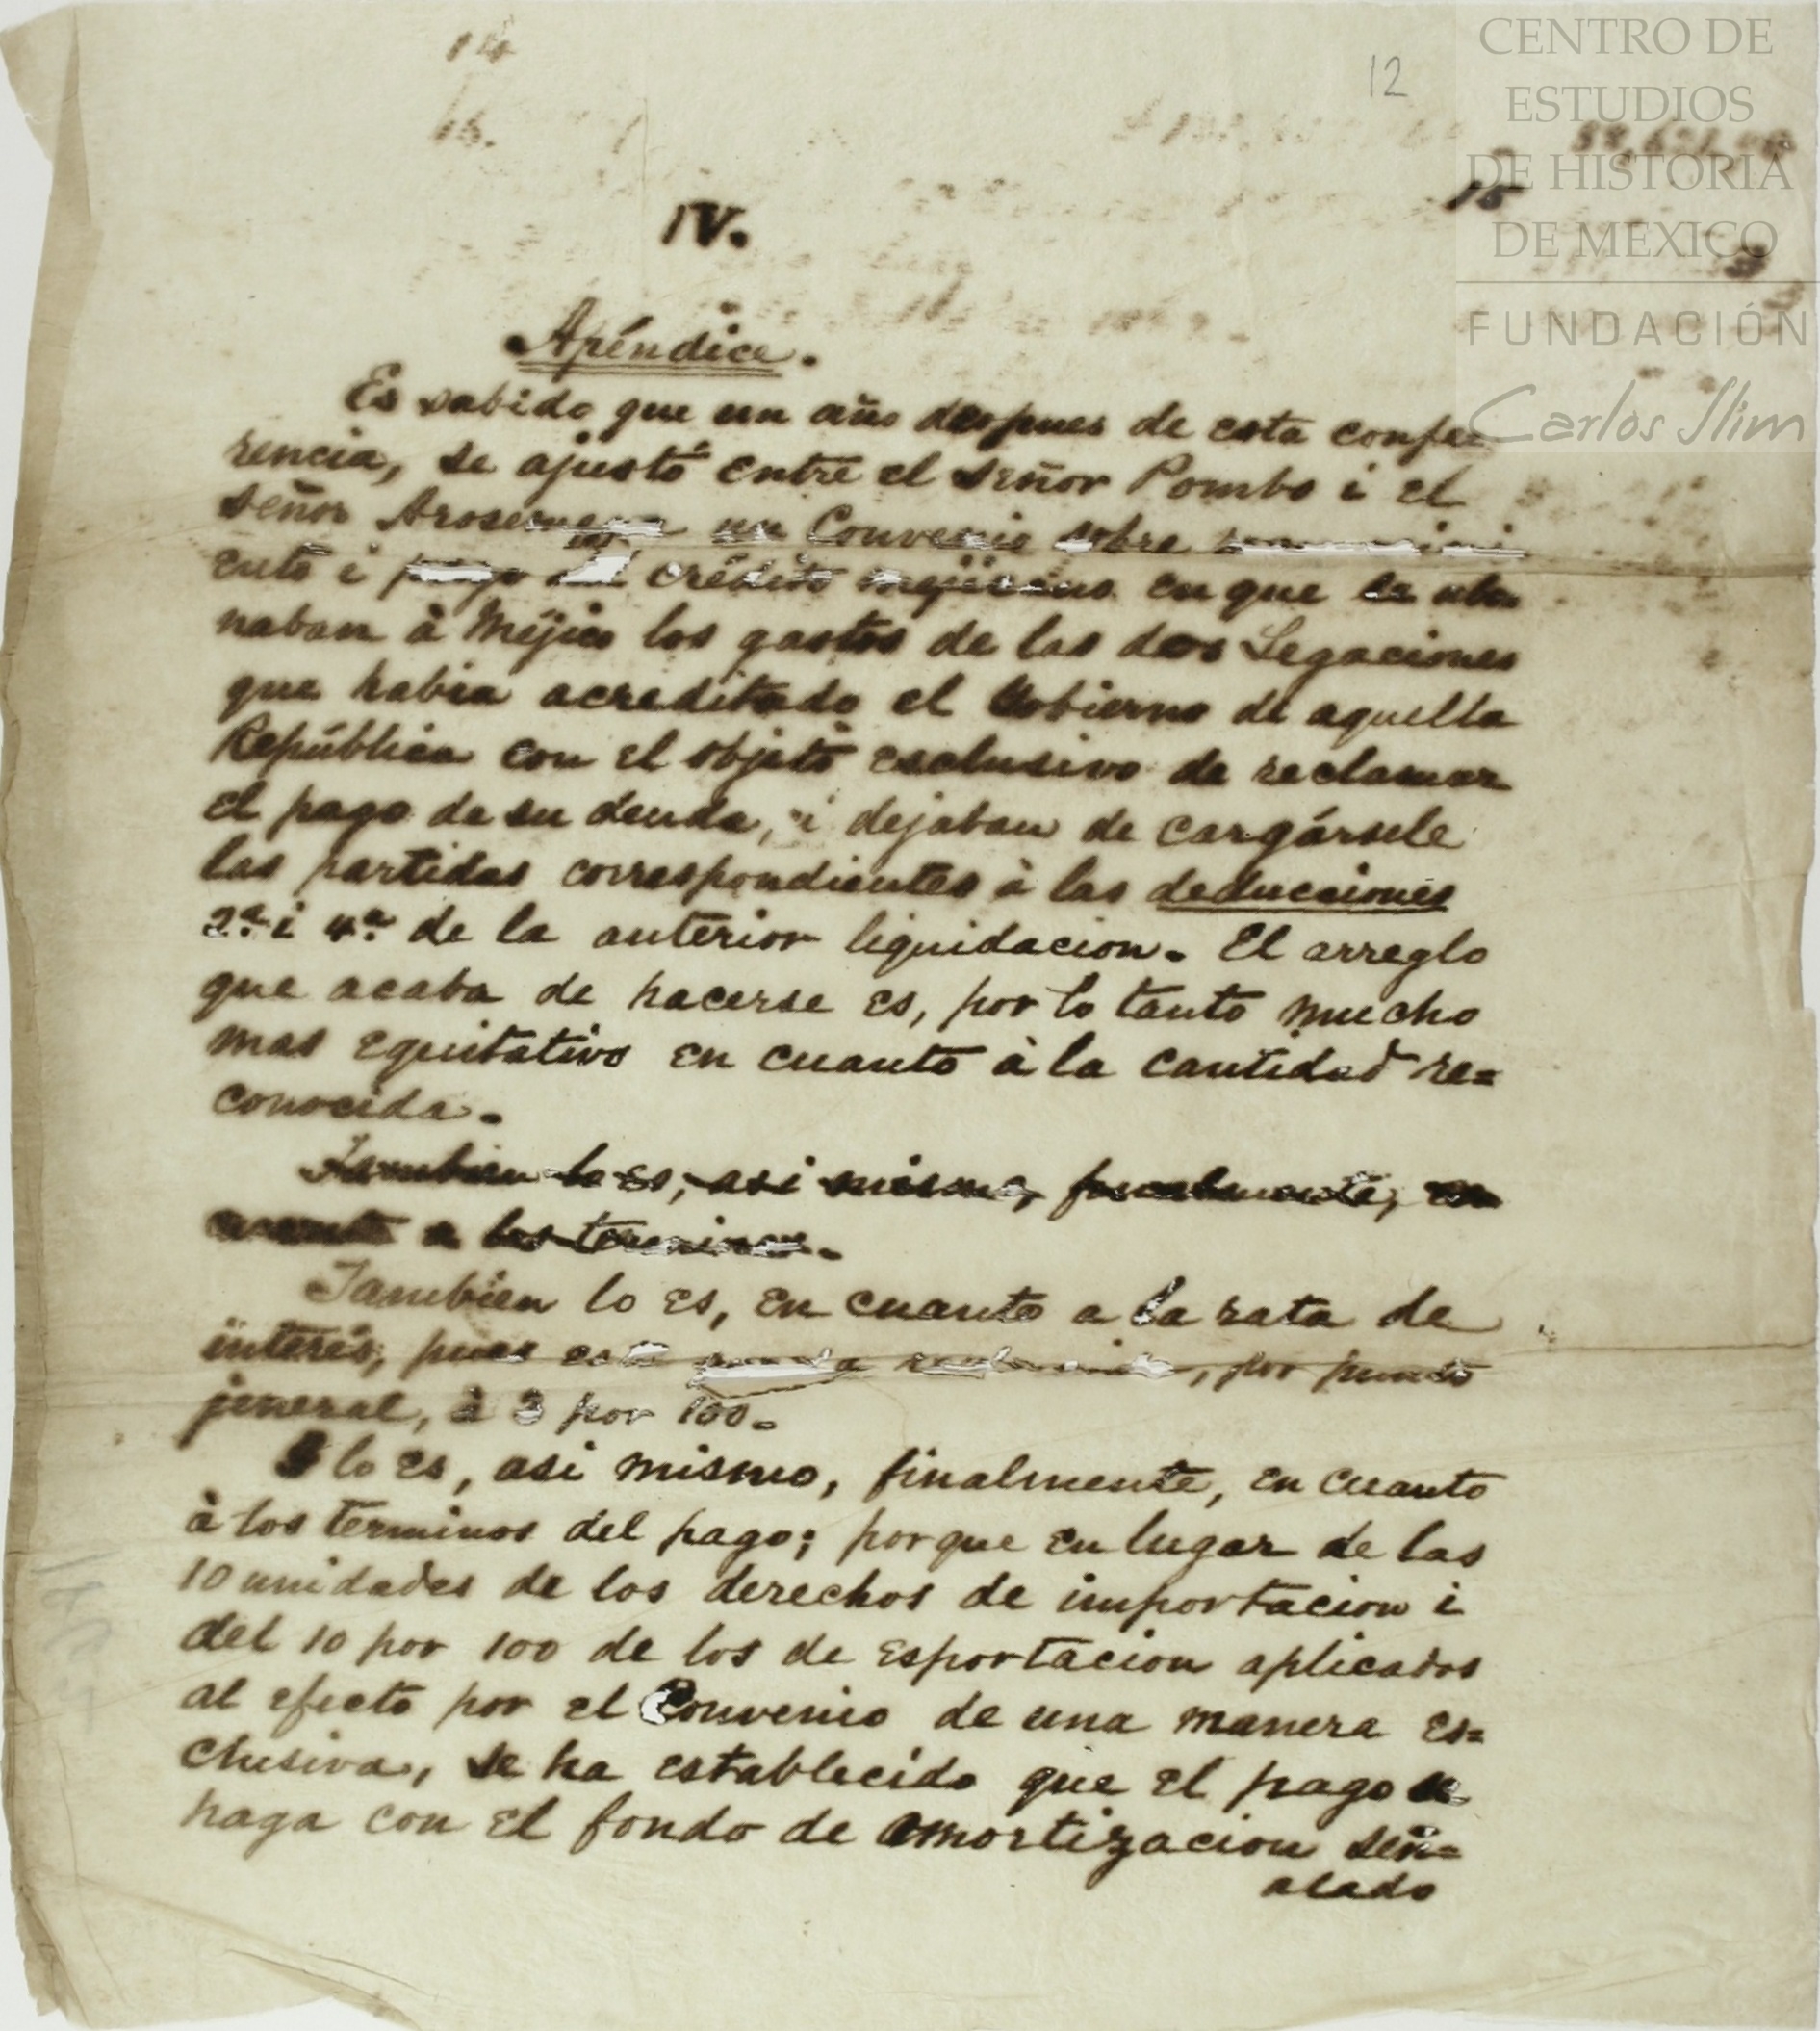 12
CENTRO DE
ESTUDIOS
DE HISTORIA
DE MEXICO
FUNDACIÓN
Carlos Slim
15
IV.
Apéndice.
Es sabido que un año despues de esta confe
rencia, se ajustó entre el Señor Pombo i el
Señor Arosemena un Convenio sobre
ento i pago del crédito mejicano en que se abo
naban à Méjico los gastos de las dos Legaciones
que habia acreditado el Gobierno de aquella
República con el objeto esclusivo de reclamar
el pago de su deuda, i dejaban de cargársele
las partidas correspondientes à las deducciones
2ª i 4ª de la anterior liquidacion. El arreglo
que acaba de hacerse es, por lo tanto mucho
mas equitativo en cuanto à la cantidad re=
conocida.
Tambien lo es, asi mismo, finalmente, en
cuanto a los terminos.
Tambien lo es, en cuanto a la rata de
interés, pues este, por punto
jeneral, à 3 por 100.
I lo es, asi mismo, finalmente, en cuanto
à los terminos del pago; porque en lugar de las
10 unidades de los derechos de importacion i
del 10 por 100 de los de esportacion aplicados
al efecto por el Convenio de una manera es=
clusiva, se ha establecido que el pago se
haga con el fondo de amortizacion señ=
alado